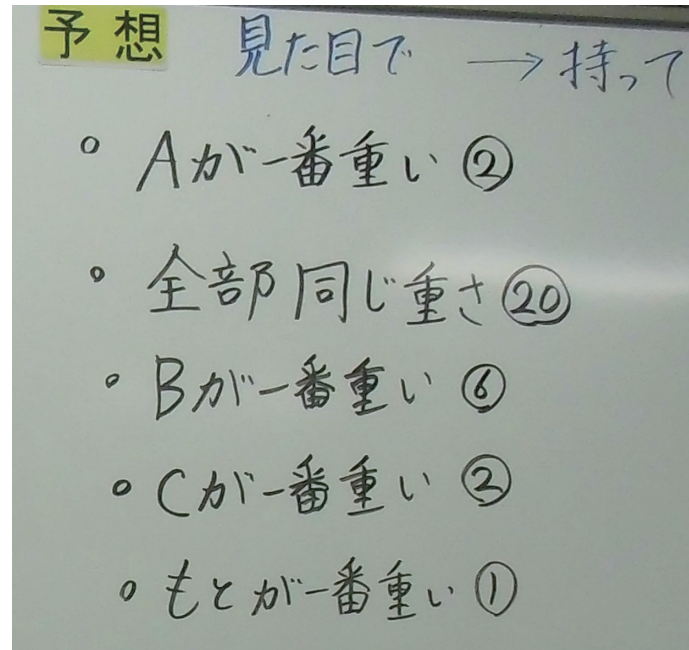 予想 見た目で → 持って
○ Aが一番重い ②
○ 全部同じ重さ ⑳
○ Bが一番重い ⑥
○ Cが一番重い ②
○ もとが一番重い ①